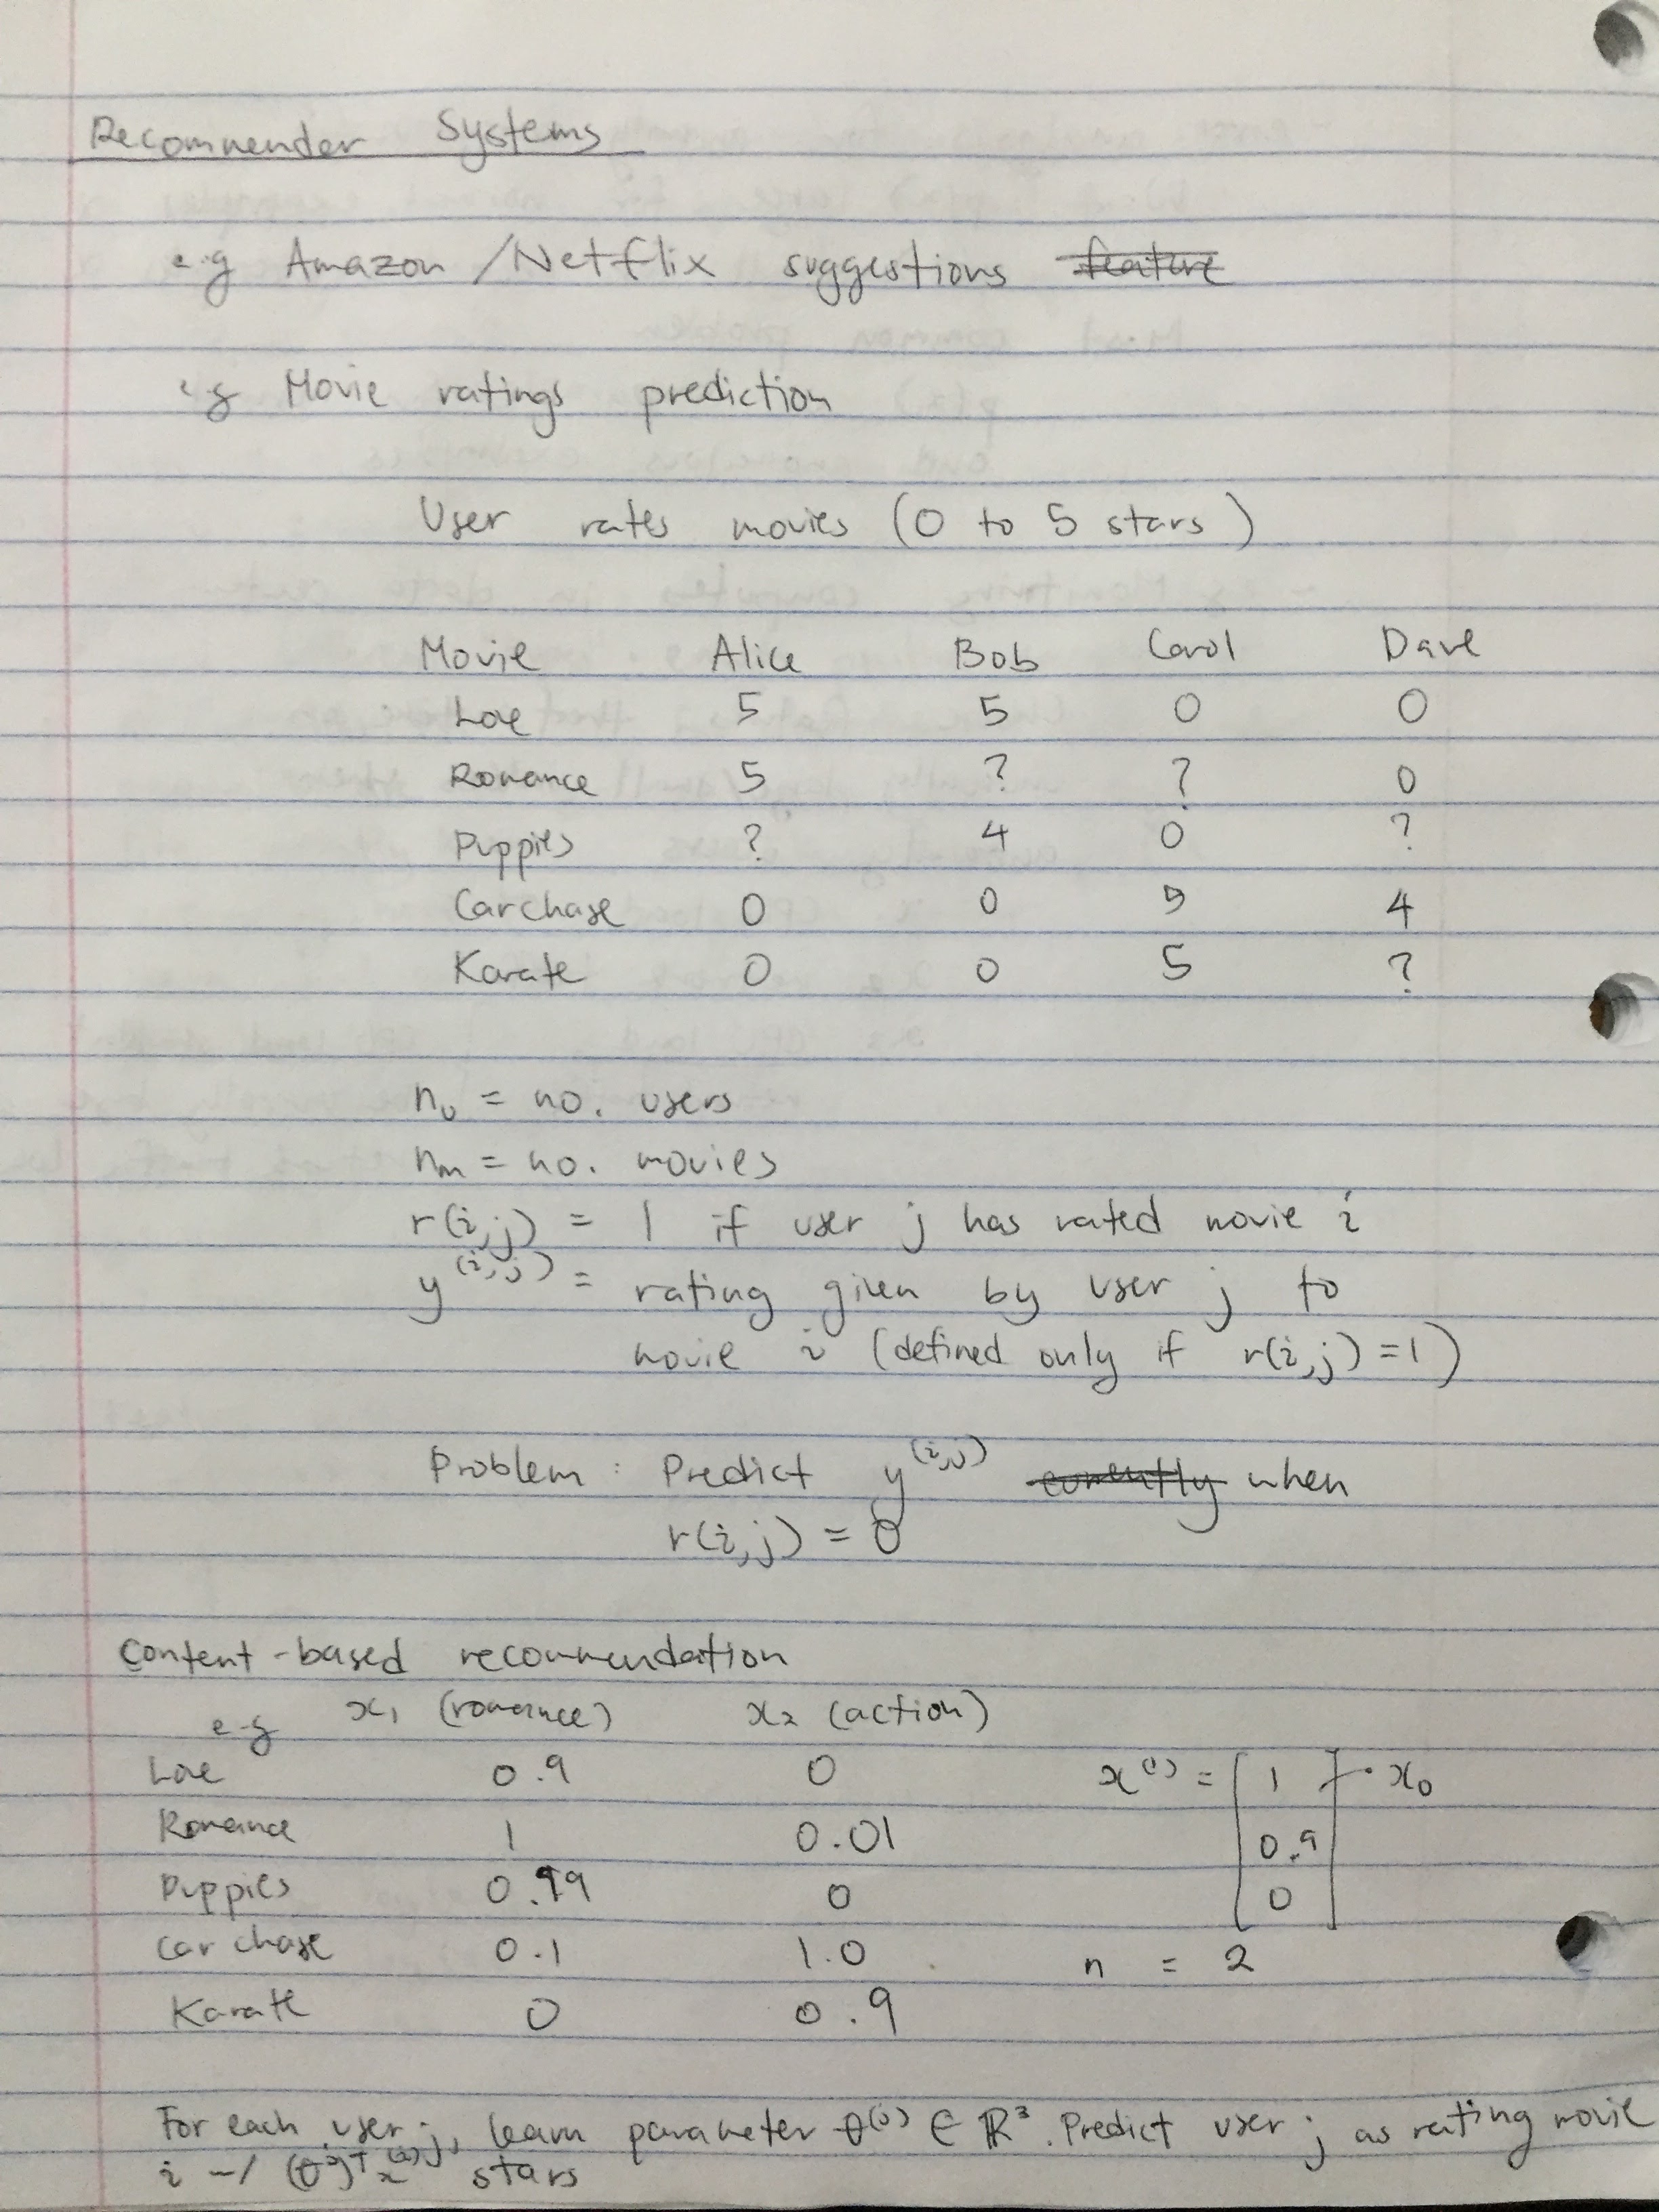 Recommender Systems
e.g Amazon /Netflix suggestions feature
e.g Movie ratings prediction
User rates movies (0 to 5 stars)
Movie Alice Bob Carol Dave
Love 5 5 0 0
Romance 5 ? ? 0
Puppies ? 4 0 ?
Car chase 0 0 5 4
Karate 0 0 5 ?
n_u = no. users
n_m = no. movies
r(i,j) = 1 if user j has rated movie i
y^(i,j) = rating given by user j to
movie i (defined only if r(i,j) = 1)
Problem: Predict y^(i,j) currently when
r(i,j) = 0
Content-based recommendation
e.g x₁ (romance) x₂ (action)
Love 0.9 0 x^(1) = [ 1 ] · x₀
Romance 1 0.01 0.9
Puppies 0.99 0 0
Car chase 0.1 1.0 n = 2
Karate 0 0.9
For each user j, learn parameter θ^(j) ∈ ℝ³. Predict user j as rating movie
i w/ (θ^j)ᵀx^(i) stars